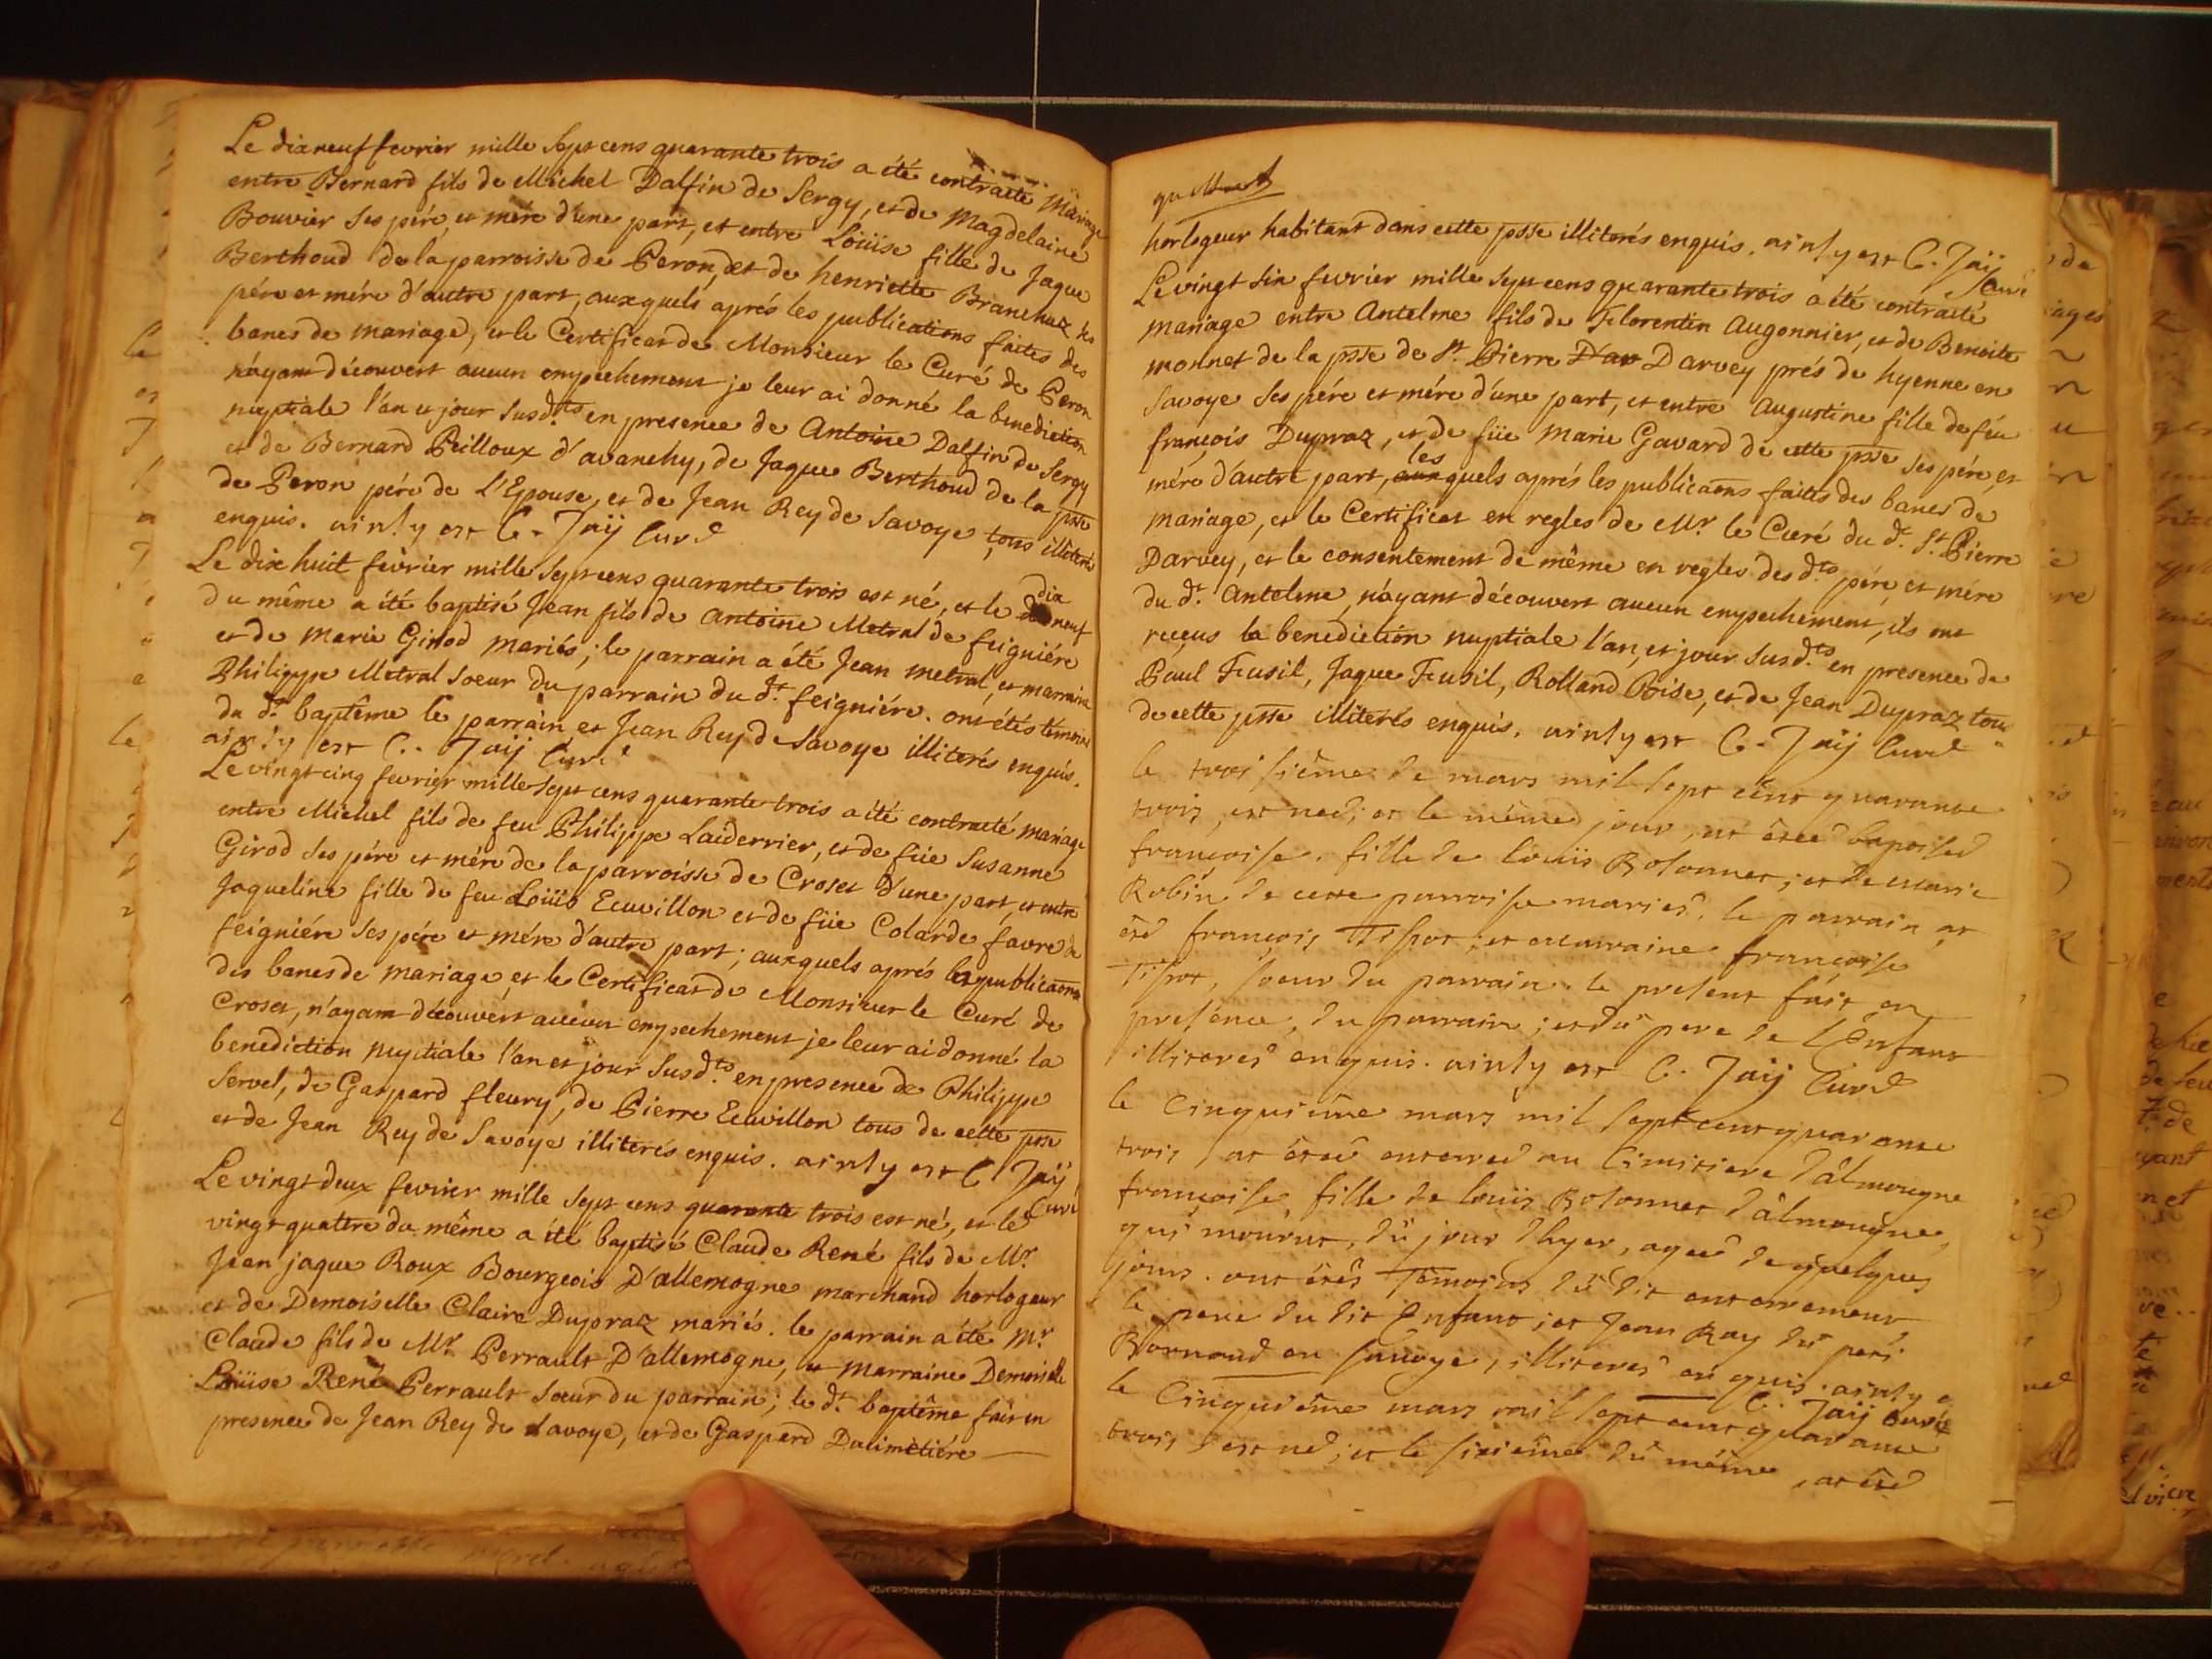 Le dixneuf fevrier mille Sept cens quarante trois a été contracté Mariage
entre Bernard fils de Michel Dalfin de Sergy, et de Magdelaine
Bouvier Ses pére, et mére d'une part, et entre Loüise fille de Jaque
Berthoud de la parroisse de Peron, et de henriette Branchuz Ses
pére et mére d'autre part, auxquels aprés les publications faites des
bancs de mariage, et le Certificat de Monsieur le Curé de Peron
n'áyant découvert aucun empechement je leur ai donné la benediction
nuptiale l'an et jour Susd.ts en presence de Antoine Dalfin de Sergy
et de Bernard Peilloux d'avanchy, de Jaque Berthoud de la psse
de Peron pére de L'Epouse, et de Jean Rey de Savoye tous illiterés
enquis. ainsy est C. Jaÿ Curé
Le dix huit fevrier mille Sept cens quarante trois est né, et le dix neuf
du même a été baptisé Jean fils de Antoine Metral de feigniére
et de Marie Girod mariés; le parrain a été Jean metral, et marraine
Philippe Metral Soeur du parrain du d.t feigniére. ont étés témoins
du d.t baptême le parrain, et Jean Rey de Savoye illiterés enquis.
ainsy est C. Jaÿ Curé
Le vingt cinq fevrier mille Sept cens quarante trois a été contracté mariage
entre Michel fils de feu Philippe Laiderrier, et de füe Susanne
Girod Ses pére et mére de la parroisse de Croset d'une part, et entre
Jaqueline fille de feu Loüis Ecuvillon et de füe Colarde favre de
feigniére Ses pére et mére d'autre part; auxquels aprés les publicaons
des bancs de mariage, et le Certificat de Monsieur le Curé de
Croset, n'ayant découvert aucun empechement je leur ai donné la
benediction nuptiale l'an et jour Susd.ts en presence de Philippe
Servel, de Gaspard fleury, de Pierre Ecuvillon tous de cette psse
et de Jean Rey de Savoye illiterés enquis. ainsy est C. Jaÿ
Curé
Le vingt deux fevrier mille Sept cens quarante trois est né, et le
vingt quattre du même a été baptisé Claude René fils de Mr
Jean jaque Roux Bourgeois D'allemogne marchand horlogeur
et de Demoiselle Claire Dupraz mariés. le parrain a été Mr.
Claude fils de Mr. Perrault D'allemogne, et marraine Demoiselle
Loüise René Perrault Soeur du parrain; le d.t baptême fait en
presence de Jean Rey de Savoye, et de Gaspard Dulimetiére
horlogeur habitant dans cette psse illiterés enquis. ainsy est C. Jaÿ
Curé
Le vingt Six fevrier mille Sept cens quarante trois a été contracté
mariage entre Antelme fils de Florentin Augonnier, et de Benoite
monnet de la psse de St. Pierre Dar Darvey prés de hyenne en
Savoye Ses pére et mére d'une part, et entre Augustine fille de féu
françois Dupraz, et de füe Marie Gavard de cette psse Ses pére, et
mére d'autre part, les quels aprés les publicaons faites des bancs de
mariage, et le Certificat en regles de Mr. le Curé du d.t St. Pierre
Darvey, et le consentement de même en regles des d.ts pére, et mére
du d.t Antelme n'áyant découvert aucun empechement, ils ont
reçeus la benediction nuptiale l'an, et jour Susd.ts en presence de
Paul Fusil, Jaque Fusil, Rolland Boise, et de Jean Dupraz tous
de cette psse illiterés enquis. ainsy est C. Jaÿ Curé
le troisiême de mars mil sept cent quarante
trois, est neé; et le mémeé jour, at êteé baptiseé
françoise. fille de loüis Bosonnet; et de marie
Robin de cette parroisse mariés. le parrain at
été françois Tissot; et marraine françoise
Tissot, soeur du parrain. le present fait en
presénce, du parrain; et dû pere de l'Enfant
illiteres enquis. ainsy est C. Jaÿ Curé
le Cinquiême mars mil sept cent quarante
trois, at êteé enterreé au Cimitiere d'âlmougne
françoise, fille de loüis Bosonnet d'âlmougne,
qui mourut, dû jour d'hyer, ageé de quelques
jours. ont êtés témoins du dit enterrement,
le pere du dit Enfant; et Jean Ray dû peti
Bornand en savoye, illiteres enquis. ainsy e
C. Jaÿ Curé
le Cinquiême mars mil sept cent quarante
trois est né; et le sixiême dû même, at êté